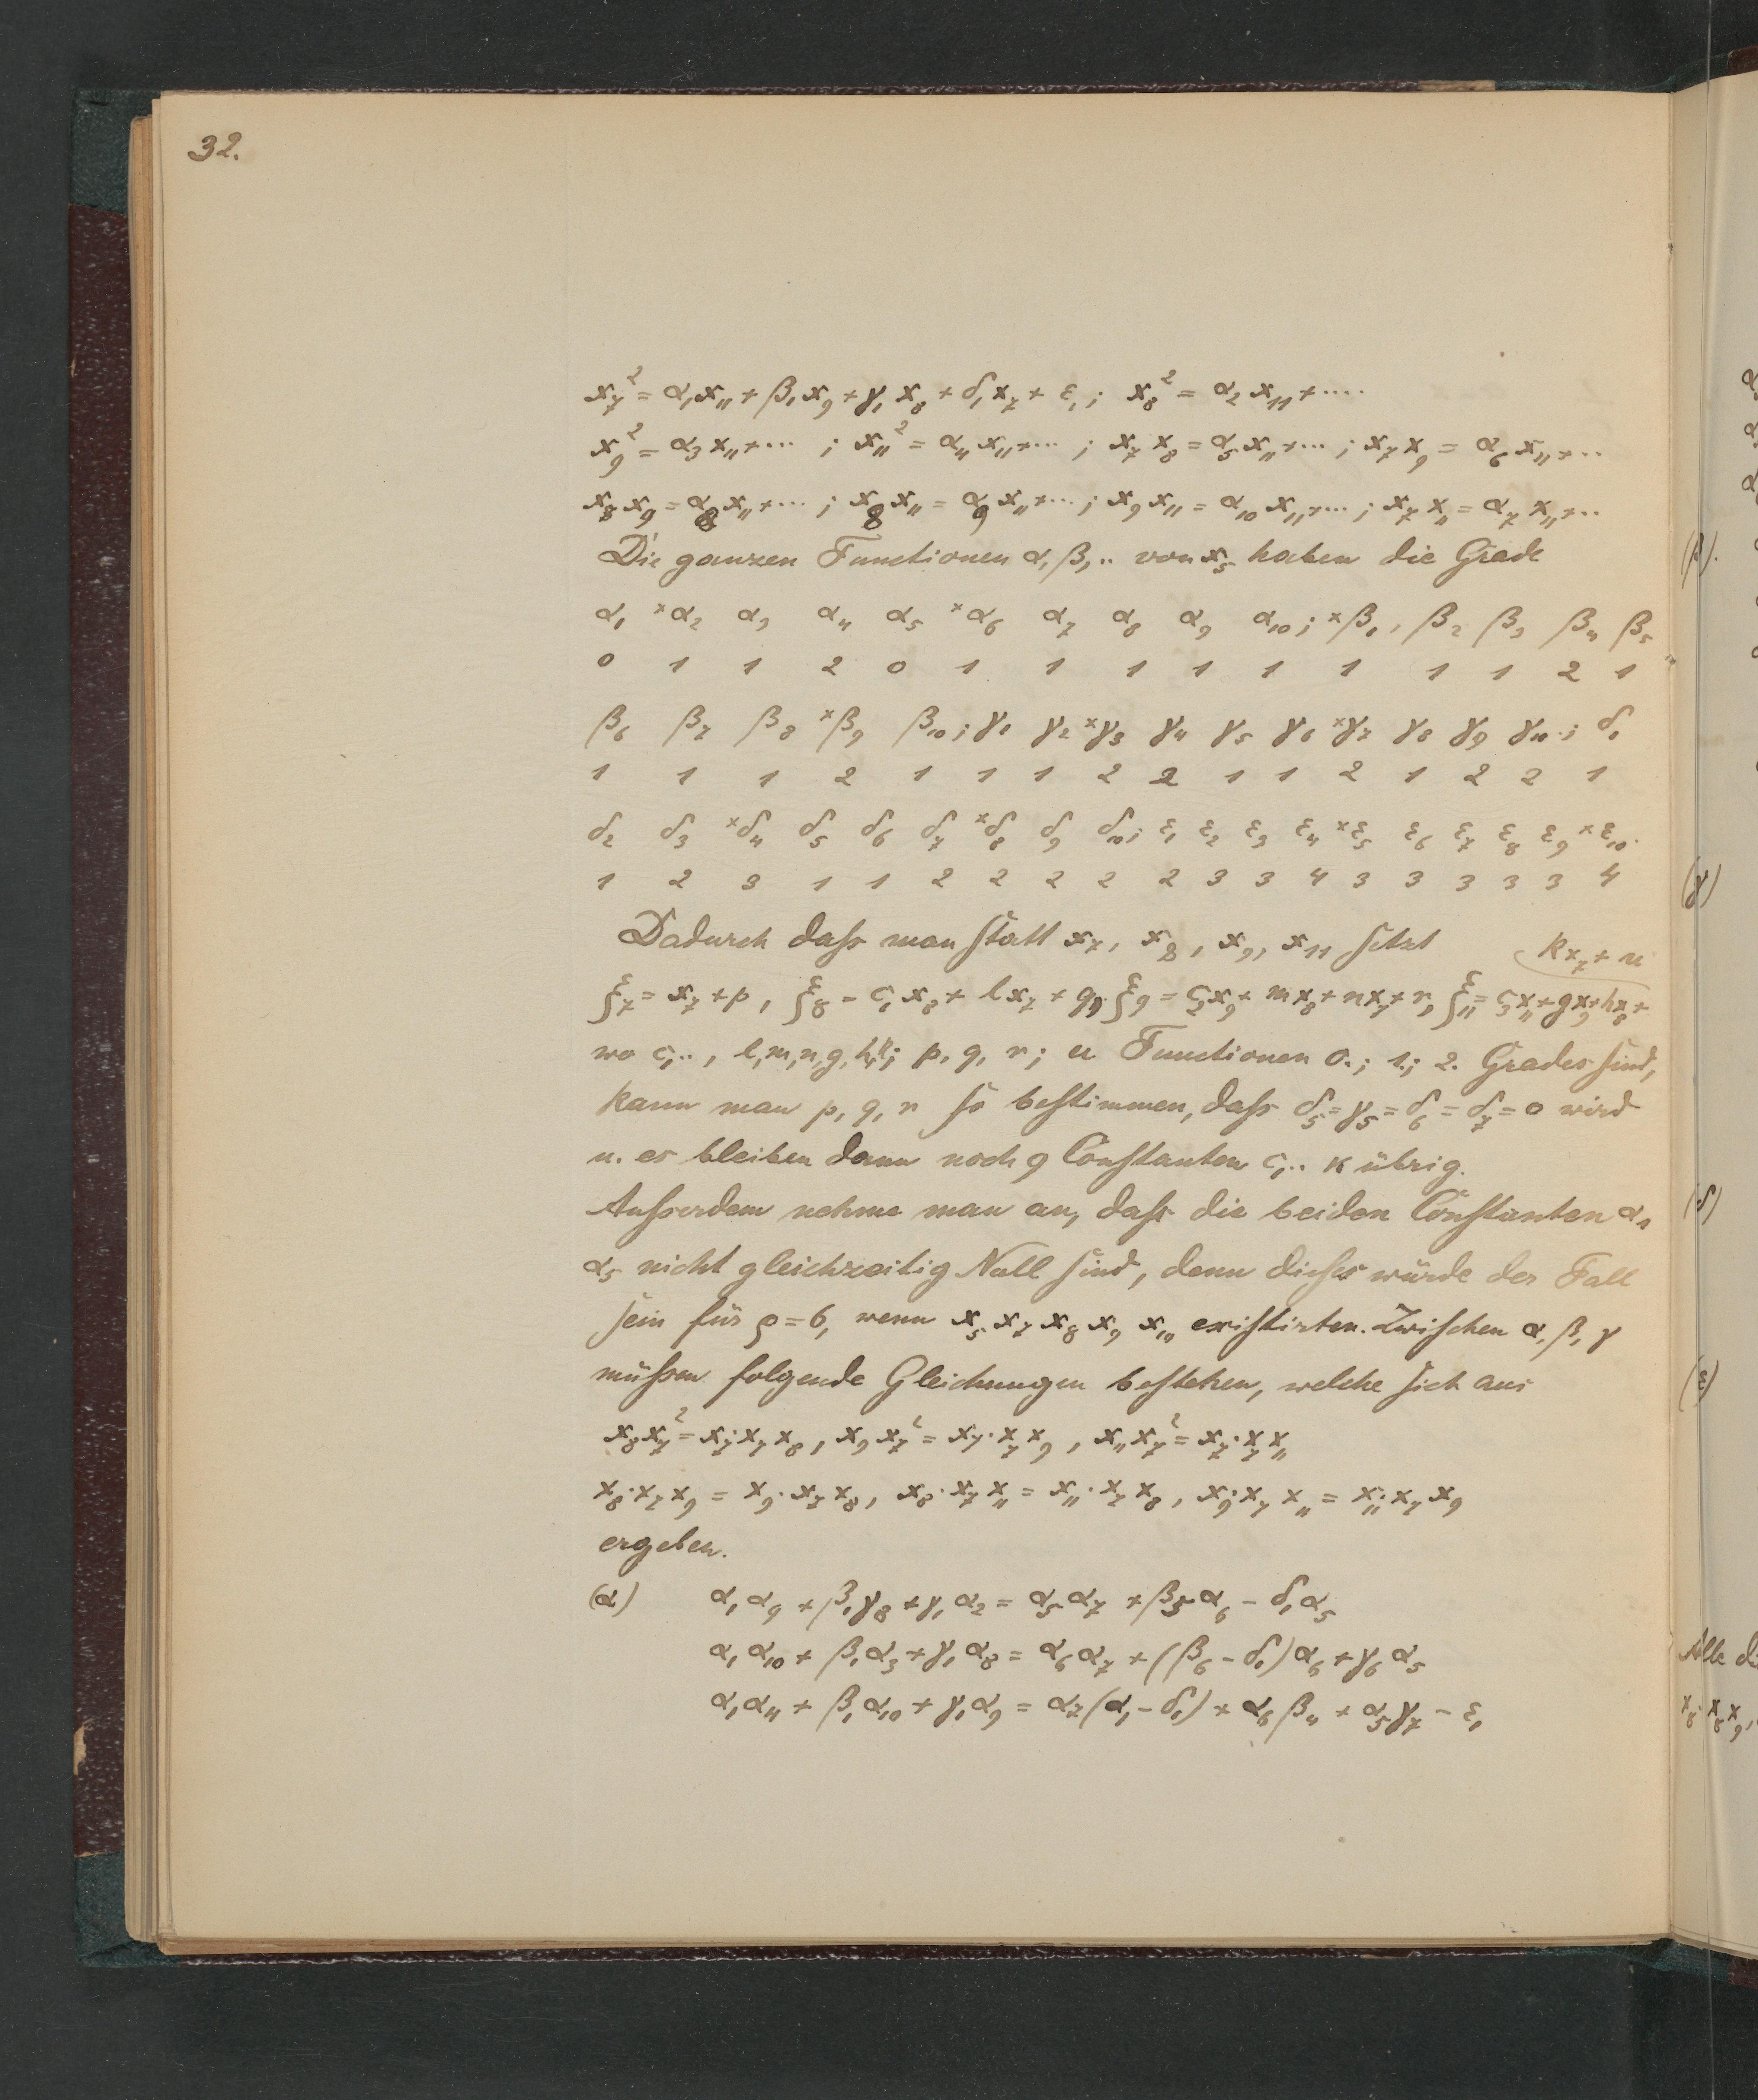 32.
x₇² = α₁x₁₁ + β₁x₉ + γ₁x₈ + δ₁x₇ + ε₁; x₈² = α₂x₁₁ + ....
x₉² = α₃x₁₁ + ... ; x₁₁² = α₄x₁₁ + ... ; x₇x₈ = α₅x₁₁ + ... ; x₇x₉ = α₆x₁₁ + ..
x₈x₉ = α₈x₁₁ + ... ; x₈x₁₁ = α₉x₁₁ + ... ; x₉x₁₁ = α₁₀x₁₁ + ... ; x₇x₁₁ = α₇x₁₁ + ..
Die ganzen Functionen α, β, .. von x₅ haben die Grade
α₁ ˣα₂ α₃ α₄ α₅ ˣα₆ α₇ α₈ α₉ α₁₀; ˣβ₁, β₂ β₃ β₄ β₅
0 1 1 2 0 1 1 1 1 1 1 1 1 2 1
β₆ β₇ β₈ ˣβ₉ β₁₀; γ₁ γ₂ ˣγ₃ γ₄ γ₅ γ₆ ˣγ₇ γ₈ γ₉ γ₁₀; δ₁
1 1 1 2 1 1 1 2 2 1 1 2 1 2 2 1
δ₂ δ₃ ˣδ₄ δ₅ δ₆ δ₇ ˣδ₈ δ₉ δ₁₀; ε₁ ε₂ ε₃ ε₄ ˣε₅ ε₆ ε₇ ε₈ ε₉ ˣε₁₀.
1 2 3 1 1 2 2 2 2 2 3 3 4 3 3 3 3 3 4
Dadurch daſs man ſtatt x₇, x₈, x₉, x₁₁ ſetzt
kx₇ + u
ξ₇ = x₇ + p, ξ₈ = c₁x₈ + lx₇ + q, ξ₉ = c₂x₉ + mx₈ + nx₇ + r, ξ₁₁ = c₃x₁₁ + gx₉ + hx₈ +
wo c₁.., l, m, n, g, h, k; p, q, r; u Functionen 0.; 1.; 2. Grades ſind,
kann man p, q, r ſo beſtimmen, daſs δ₅ = γ₅ = δ₆ = δ₇ = 0 wird
u. es bleiben dann noch 9 Conſtanten c₁.. k übrig.
Auſserdem nehme man an, daſs die beiden Conſtanten α₁
α₅ nicht gleichzeitig Null ſind, denn dieſes würde der Fall
ſein für ρ = 6, wenn x₅ x₇ x₈ x₉ x₁₀ exiſtirten. Zwiſchen α, β, γ
müſsen folgende Gleichungen beſtehen, welche ſich aus
x₈x₇² = x₇·x₇x₈, x₉x₇² = x₇·x₇x₉, x₁₁x₇² = x₇·x₇x₁₁
x₈·x₇x₉ = x₉·x₇x₈, x₈·x₇x₁₁ = x₁₁·x₇x₈, x₉·x₇x₁₁ = x₁₁·x₇x₉
ergeben.
(α) α₁α₉ + β₁γ₈ + γ₁α₂ = α₅α₇ + β₅α₆ − δ₁α₅
α₁α₁₀ + β₁α₃ + γ₁α₈ = α₆α₇ + (β₆ − δ₁)α₆ + γ₆α₅
α₁α₄ + β₁α₁₀ + γ₁α₉ = α₇(α₁ − δ₁) + α₆β₄ + α₅γ₇ − ε₁
(β).
(γ)
(δ)
(ε)
Alle di
x₈·x₈x₉,